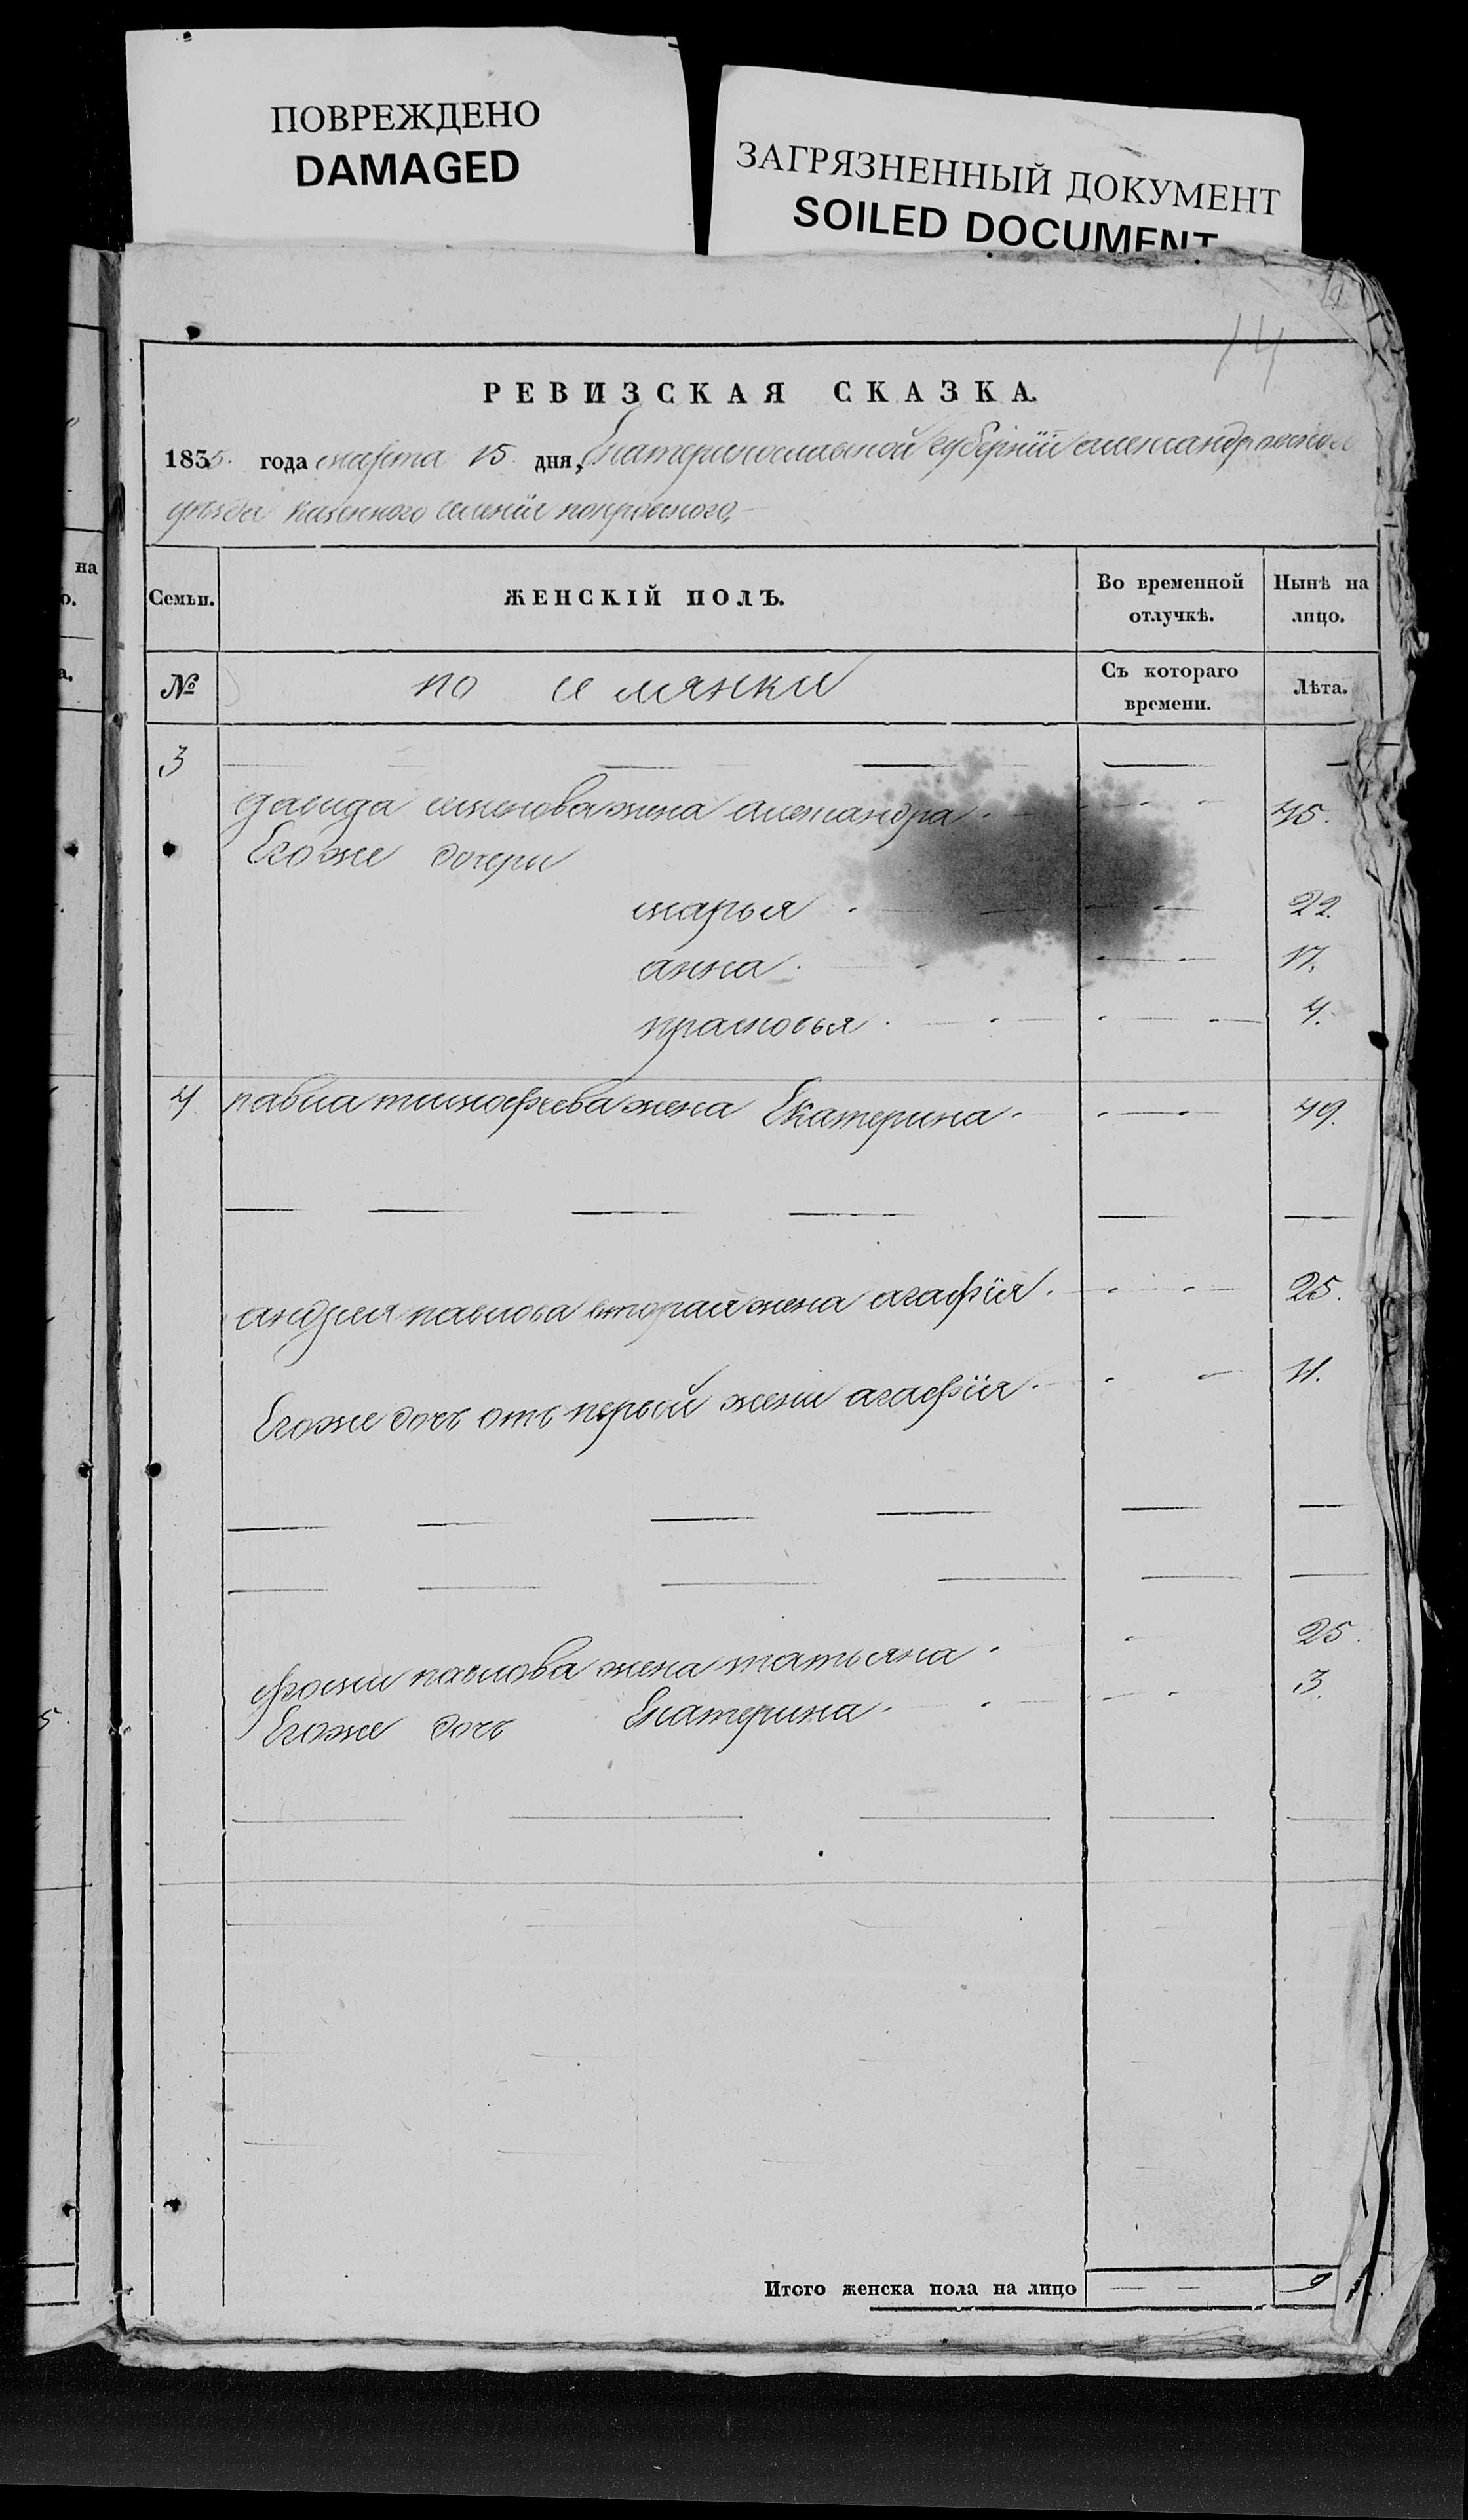 ПОВРЕЖДЕНО
DAMAGED
ЗАГРЯЗНЕННЫЙ ДОКУМЕНТ
SOILED DOCUMENT
14
РЕВИЗСКАЯ СКАЗКА.
1835. года марта 15 дня, Екатеринославской губернїи александровскаго
уѣзда казенного селенїя покровского,
на
о.
а.
5.
Семьи. ЖЕНСКІЙ ПОЛЪ. Во временной отлучкѣ. Нынѣ на лицо.
№ по селянки Съ котораго времени. Лѣта.
3
давида семенова жена александра 45.
Егоже дочери
марья 22.
анна 17.
прасковья 4.
4 павла тимофеева жена Екатерина 49.
андрея павлова вторая жена агафїя 25.
Егоже дочь отъ первой жени агафїя 11.
фоми павлова жена татьяна 25.
Егоже дочь Екатерина 3.
Итого женска пола на лицо 9